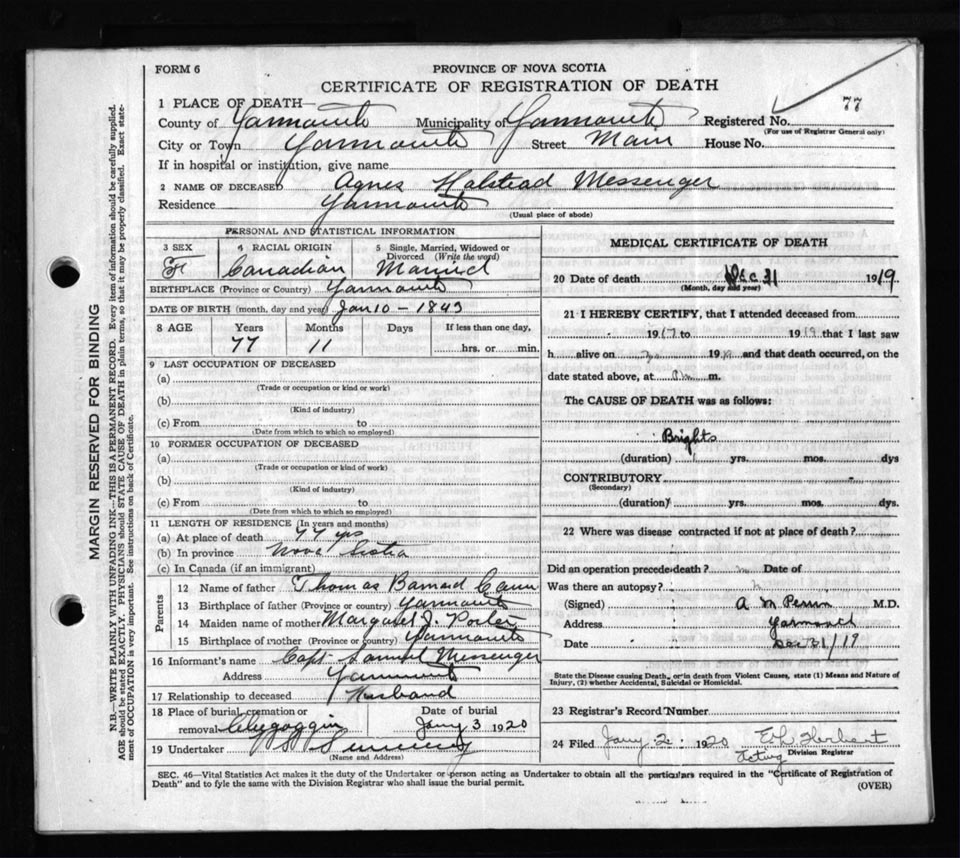 FORM 6
PROVINCE OF NOVA SCOTIA
CERTIFICATE OF REGISTRATION OF DEATH
77
1 PLACE OF DEATH—
County of Yarmouth Municipality of Yarmouth Registered No.
(For use of Registrar General only)
City or Town Yarmouth Street Main House No.
If in hospital or institution, give name
2 NAME OF DECEASED Agnes Halstead Messenger
Residence Yarmouth
(Usual place of abode)
PERSONAL AND STATISTICAL INFORMATION
3 SEX 4 RACIAL ORIGIN 5 Single, Married, Widowed or Divorced (Write the word)
F Canadian Married
BIRTHPLACE (Province or Country) Yarmouth
DATE OF BIRTH (month, day and year) Jan 10 - 1843
8 AGE Years Months Days If less than one day,
77 11 hrs. or min.
9 LAST OCCUPATION OF DECEASED
(a)
(Trade or occupation or kind or work)
(b)
(Kind of industry)
(c) From to
(Date from which to which so employed)
10 FORMER OCCUPATION OF DECEASED
(a)
(Trade or occupation or kind of work)
(b)
(Kind of industry)
(c) From to
(Date from which to which so employed)
11 LENGTH OF RESIDENCE (In years and months)
(a) At place of death 77 yrs
(b) In province Nova Scotia
(c) In Canada (if an immigrant)
Parents
12 Name of father Thomas Barnard Cann
13 Birthplace of father (Province or country) Yarmouth
14 Maiden name of mother Margaret J. Porter
15 Birthplace of mother (Province or country) Yarmouth
16 Informant's name Capt Samuel Messenger
Address Yarmouth
17 Relationship to deceased Husband
18 Place of burial, cremation or removal Chegoggin
Date of burial Jany 3 1920
19 Undertaker
(Name and Address)
MEDICAL CERTIFICATE OF DEATH
20 Date of death Dec 31 1919
(Month, day and year)
21 I HEREBY CERTIFY, that I attended deceased from
1917 to 1919 that I last saw
h alive on 1919 and that death occurred, on the
date stated above, at m.
The CAUSE OF DEATH was as follows:
Brights
(duration) yrs. mos. dys
CONTRIBUTORY
(Secondary)
(duration) yrs. mos. dys.
22 Where was disease contracted if not at place of death?
Did an operation precede death? Date of
Was there an autopsy?
(Signed) A M Perrin M.D.
Address Yarmouth
Date Dec 31/19
State the Disease causing Death, or in death from Violent Causes, state (1) Means and Nature of
Injury, (2) whether Accidental, Suicidal or Homicidal.
23 Registrar's Record Number
24 Filed Jany 2 1920 Herbert
Acting Division Registrar
SEC. 46—Vital Statistics Act makes it the duty of the Undertaker or person acting as Undertaker to obtain all the particulars required in the "Certificate of Registration of
Death" and to fyle the same with the Division Registrar who shall issue the burial permit.
(OVER)
MARGIN RESERVED FOR BINDING
N.B.—WRITE PLAINLY WITH UNFADING INK—THIS IS A PERMANENT RECORD. Every item of information should be carefully supplied.
AGE should be stated EXACTLY. PHYSICIANS should STATE CAUSE OF DEATH in plain terms, so that it may be properly classified. Exact state-
ment of OCCUPATION is very important. See instructions on back of Certificate.